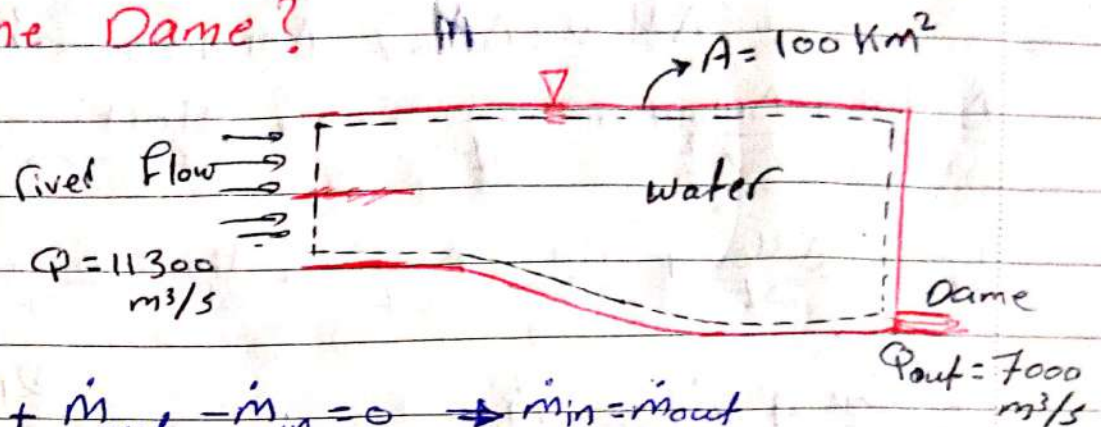 ne Dame? ṁ
A = 100 Km²
river flow
water
Q = 11300
m³/s
Dame
Qout = 7000
m³/s
+ ṁ , -ṁin = 0 → ṁin = ṁout